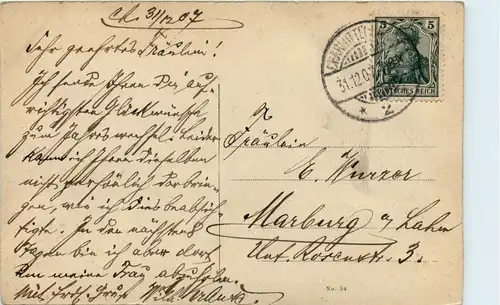 Ch. 31/12 07
Sehr geehrtes Fräulein!
Ich sende Ihnen die auf-
richtigsten Glückwünsche
zum Jahreswechsel. Leider
kann ich Ihnen dieselben
nicht persönlich darbrin-
gen, wie ich dies beabsich-
tigte. In den nächsten
Tagen bin ich aber dort
um meine Frau abzuholen.
Mit frdl. Gruß
5 5
DEUTSCHES REICH
31.12.07
* 2
Fräulein
E. Wurzer
Marburg a/Lahn
Unt. Rosenstr. 3.
No. 54